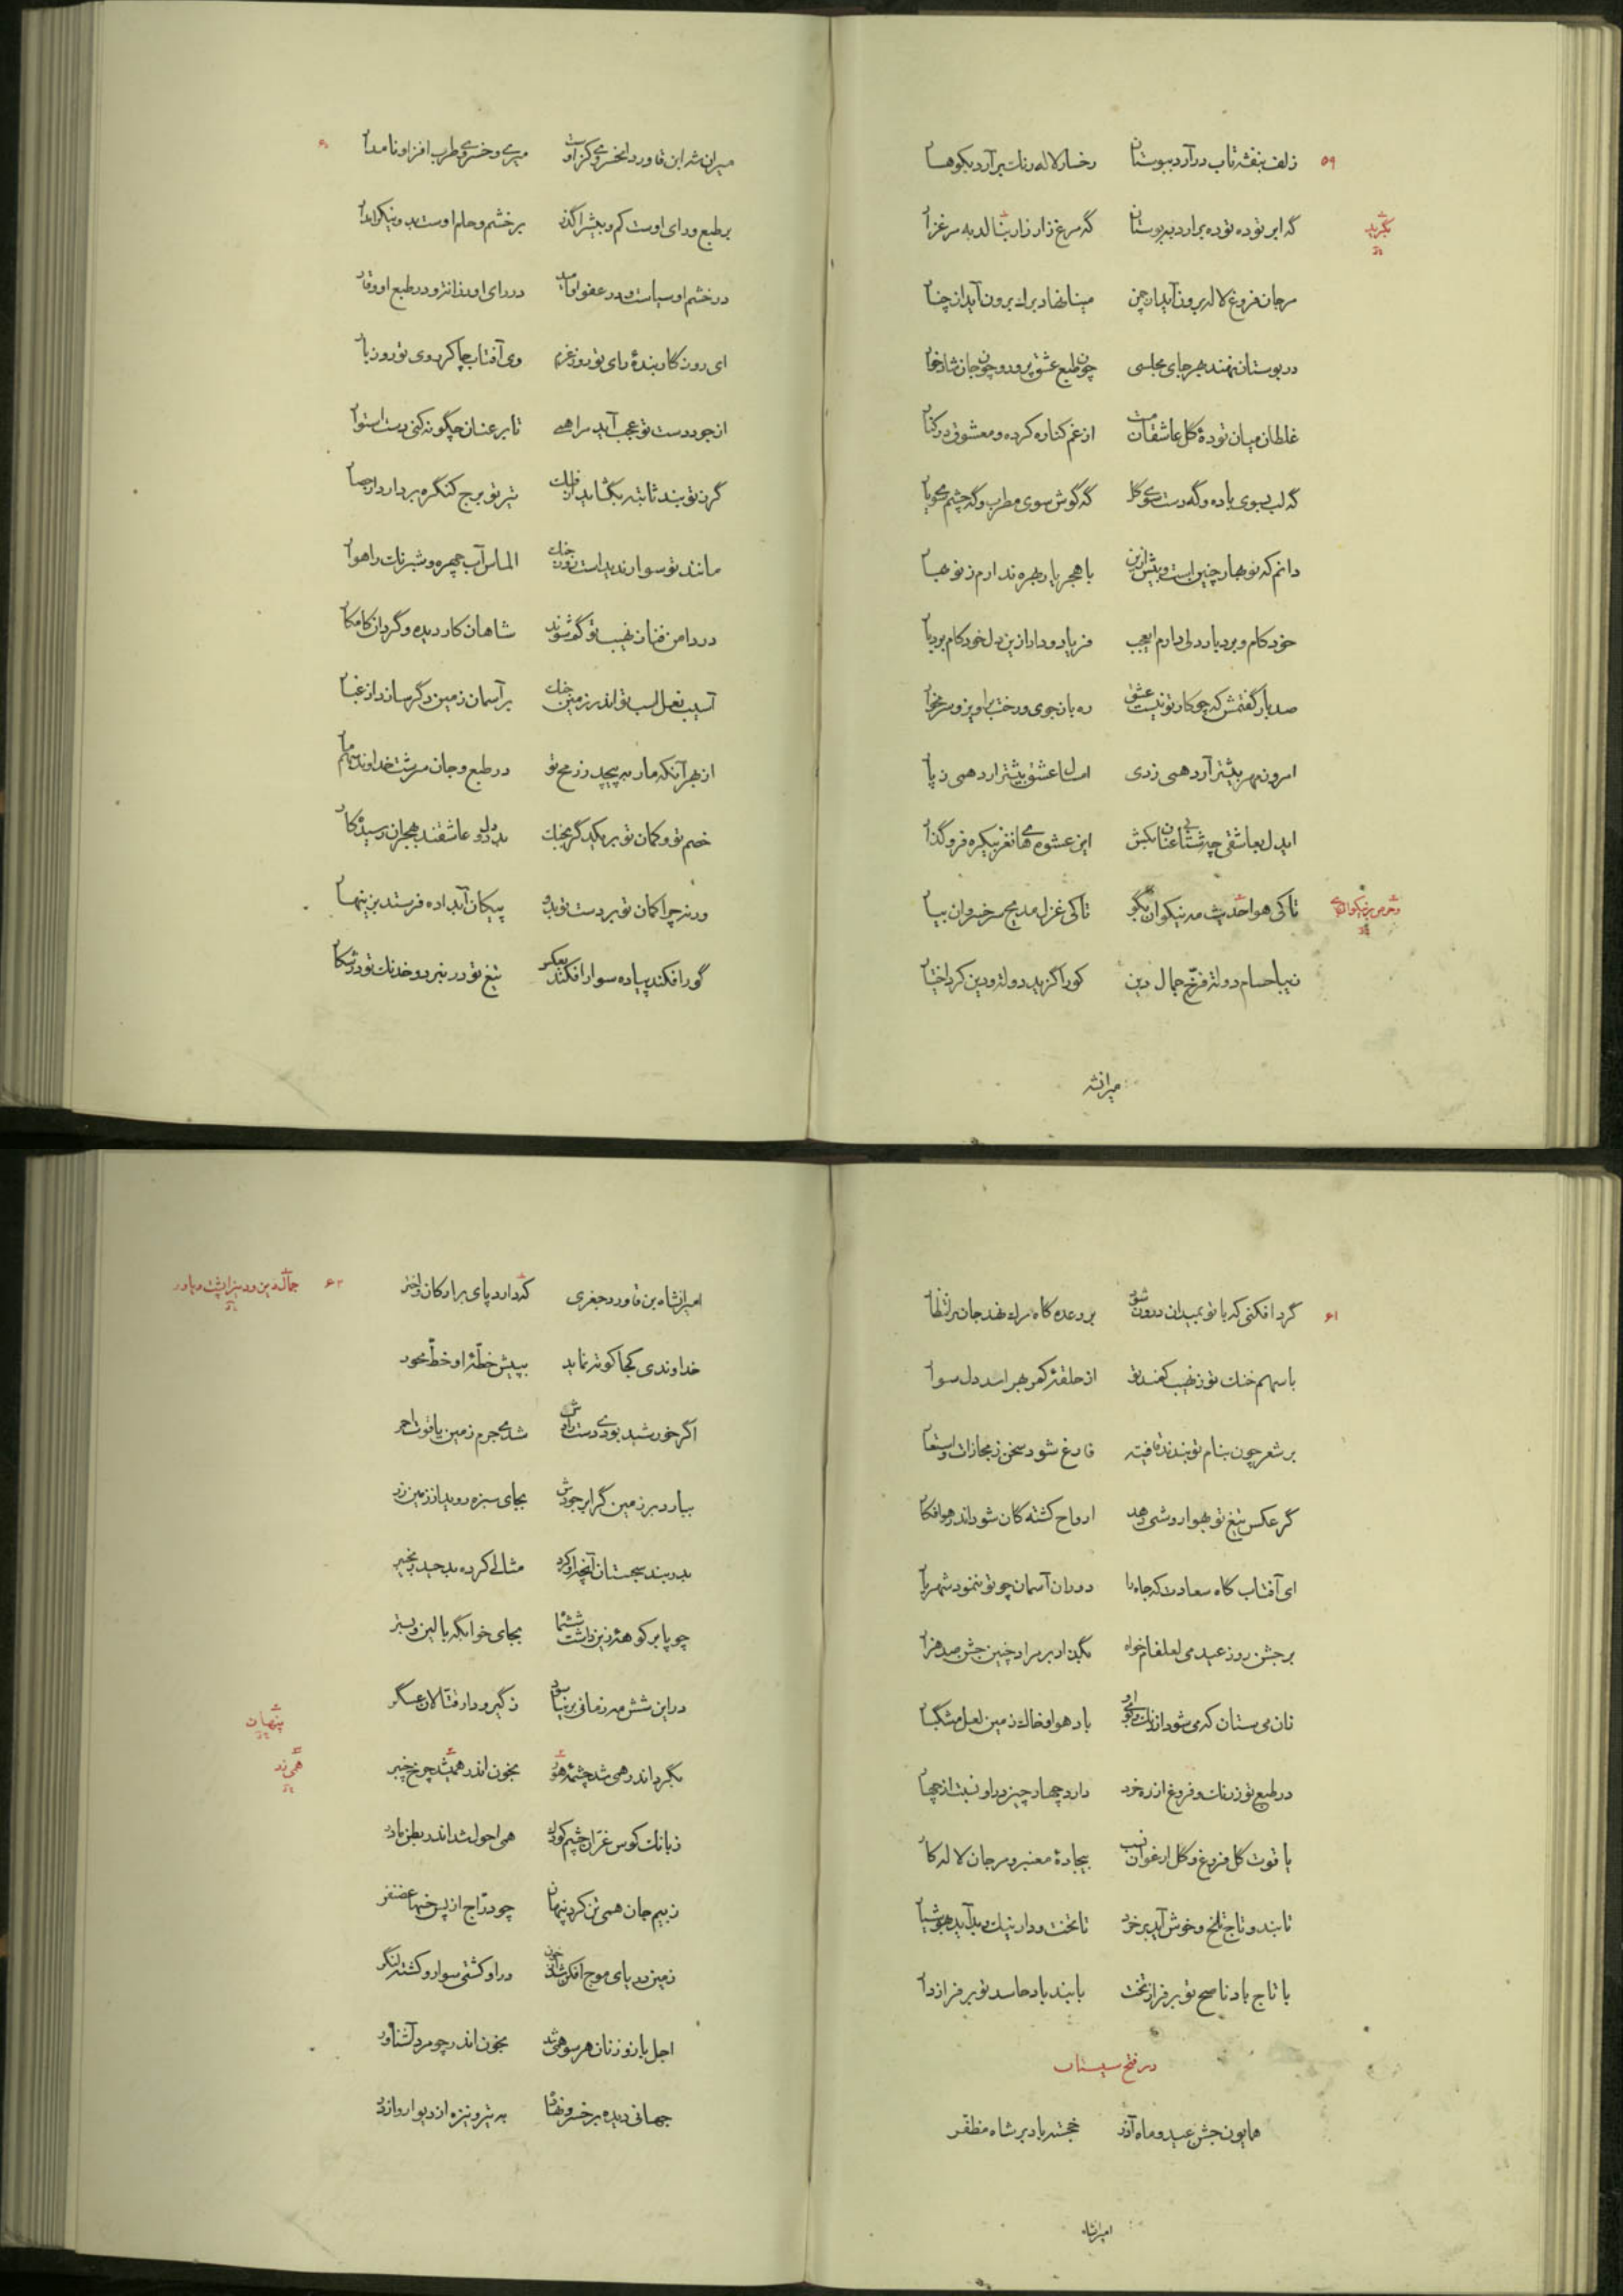 ۵۹
زلف بنفشه تاب درآرد ببوستان رخسار لاله رنگ برآرد بکوهسار
گه ابر توده توده برآرد به بوستان گه مرغ زار زار بنالد به مرغزار
بگرید
مرجان فروغ لاله برون آید از چمن مینا نهاد برگ برون آید از چنار
در بوستان نهند بهر جای مجلسی چون طبع عشق پرور و چون جان شادخوار
غلطان میان تودهٔ گل عاشقان مست از غم کناره کرده و معشوق در کنار
گه لب بسوی باده و گه دست سوی گل گه گوش سوی مطرب و گه چشم سوی یار
دانم که نوبهار چنین است و بیش ازین با هجر یار بهره ندارم ز نوبهار
خودکام و بردبار دلی دارم ای عجب فریاد و داد ازین دل خودکام بردبار
صد بار گفتمش که چو کار تو نیست عشق ره باز جوی و رخت براویز و سر مخار
امرون مهر بیشتر آرد همی ز دی امسال عشق بیشتر آرد همی ز پار
ایدل بعاشقی چه شتابی عنان بکش این عشوهای نغز بیکره فروگذار
تا کی هوا حدیث مه نیکوان بگو تا کی غزل مدیح سر خسروان بیار
زیبا حسام دولت و فرخ جمال دین کورا گزید دولت و دین کرد اختیار
میرانشه
۶۰
میران شه ابن قاورد آن خسروی کزوست میری و خسروی و طرب افزا و نامدار
بر طبع و رای اوست کم و بیش را گذر بر خشم و حلم اوست بد و نیک را مدار
در خشم او سیاست و در عفو او امید در رای او روانتر و در طبع او وقار
ای روزگار بندهٔ رای تو روز عزم وی آفتاب چاکر روی تو روز بار
از جود دست تو عجب آید مرا همی تا بر عنان چگونه کنی دست استوار
گرز تو بند ثابته بگشاید از فلک تیر تو برج کنگره بردارد از حصار
مانند تو سوار ندیدست روز جنگ الماس آب چهره و شبرنگ راهوار
در دامن فنا ز نهیب تو گم شوند شاهان کار دیده و گردان کامکار
آسیب نعل اسب تو اندر زمین جنگ بر آسمان زمین دگر سازد از غبار
از بهر آنکه مار بپیچد ز رمح تو در طبع و جان سرشت خداوند سهم مار
خصم تو و کمان تو بر یکدگر بجنگ بد دل دو عاشقند بهجران رسیده کار
ورنه چرا کمان تو بر دست تو بدو پیکان آبداده فرستد بزینهار
گور افکند پیاده سوار افکند بعکس تیغ تو در نبرد و خدنگ تو در شکار
۶۱
گرد افکنی که با تو بمیدان درون شود بر وعده گاه مرگ نهد جان بر انتظار
با سهم جنگ تو ز نهیب کمند تو از حلقهٔ کمر بهراسد دل سوار
بر شعر چون بنام تو بندند قافیت فارغ شود سخن ز مجازات و استعار
گر عکس تیغ تو بهوا روشنی دهد ارواح کشتگان شود اندر هوا فکار
ای آفتاب گاه سعادت که جاه را دوران آسمان چو تو ننمود شهریار
بر جشن روز عید می لعل فام خواه بگذار بر مراد چنین جشن صد هزار
زان می ستان که می شود از رنگ و بوی او باد هوا و خاک زمین لعل و مشکبار
در طبع تو ز رنگ و فروغ از ره خرد دارد چهار چیز در او نسبت از چهار
یاقوت گل فروغ و گل ارغوان نسب بیجادهٔ معنبر و مرجان لاله کار
تا بند و تاج تلخ و خوش آید بر خرد تا تخت و دار نیک و بد آید بهوشیار
با تاج باد ناصح تو بر فراز تخت با بند باد حاسد تو بر فراز دار
در فتح سیستان
همایون جشن عید و ماه آذر خجسته باد بر شاه مظفر
امیرانشاه
۶۲
امیرانشاه بن قاورد جغری که دارد پای برارکان و اختر
خداوندی کجا کوته نماید بپیش خطّهٔ او خطّ محور
اگر خورشید بودی دست رادش شدی جرم زمین یاقوت احمر
ببارد بر زمین گر ابر جودش بجای سبزه روید از زمین زر
بدربند سجستان آنچه او کرد مثالی کرده بد حیدر بخیبر
چو پا بر کوههٔ زین داشت شش ماه بجای خوابگه بالین و بستر
در این شش مه زمانی بر نیاسود ز گیر و دار قتالان عسگر
پنهان
بگرد اندر همی شد چشمهٔ هور بخون اندر همیشد چرخ چنبر
همی زد
ز بانگ کوس غرّان چشم کودک همی احول شد اندر بطن مادر
ز بیم جان همی تن کرد پنهان چو درّاج از پس خنها غضنفر
زمین دریای موج افکن شد از خون در او کشتی سوار و کشته لنگر
اجل بازو زنان هر سو همی شد بخون اندر چو مرد آشناور
جهانی دیده بر خسرو نهاده به تیر و نیزه از دیوار و از در